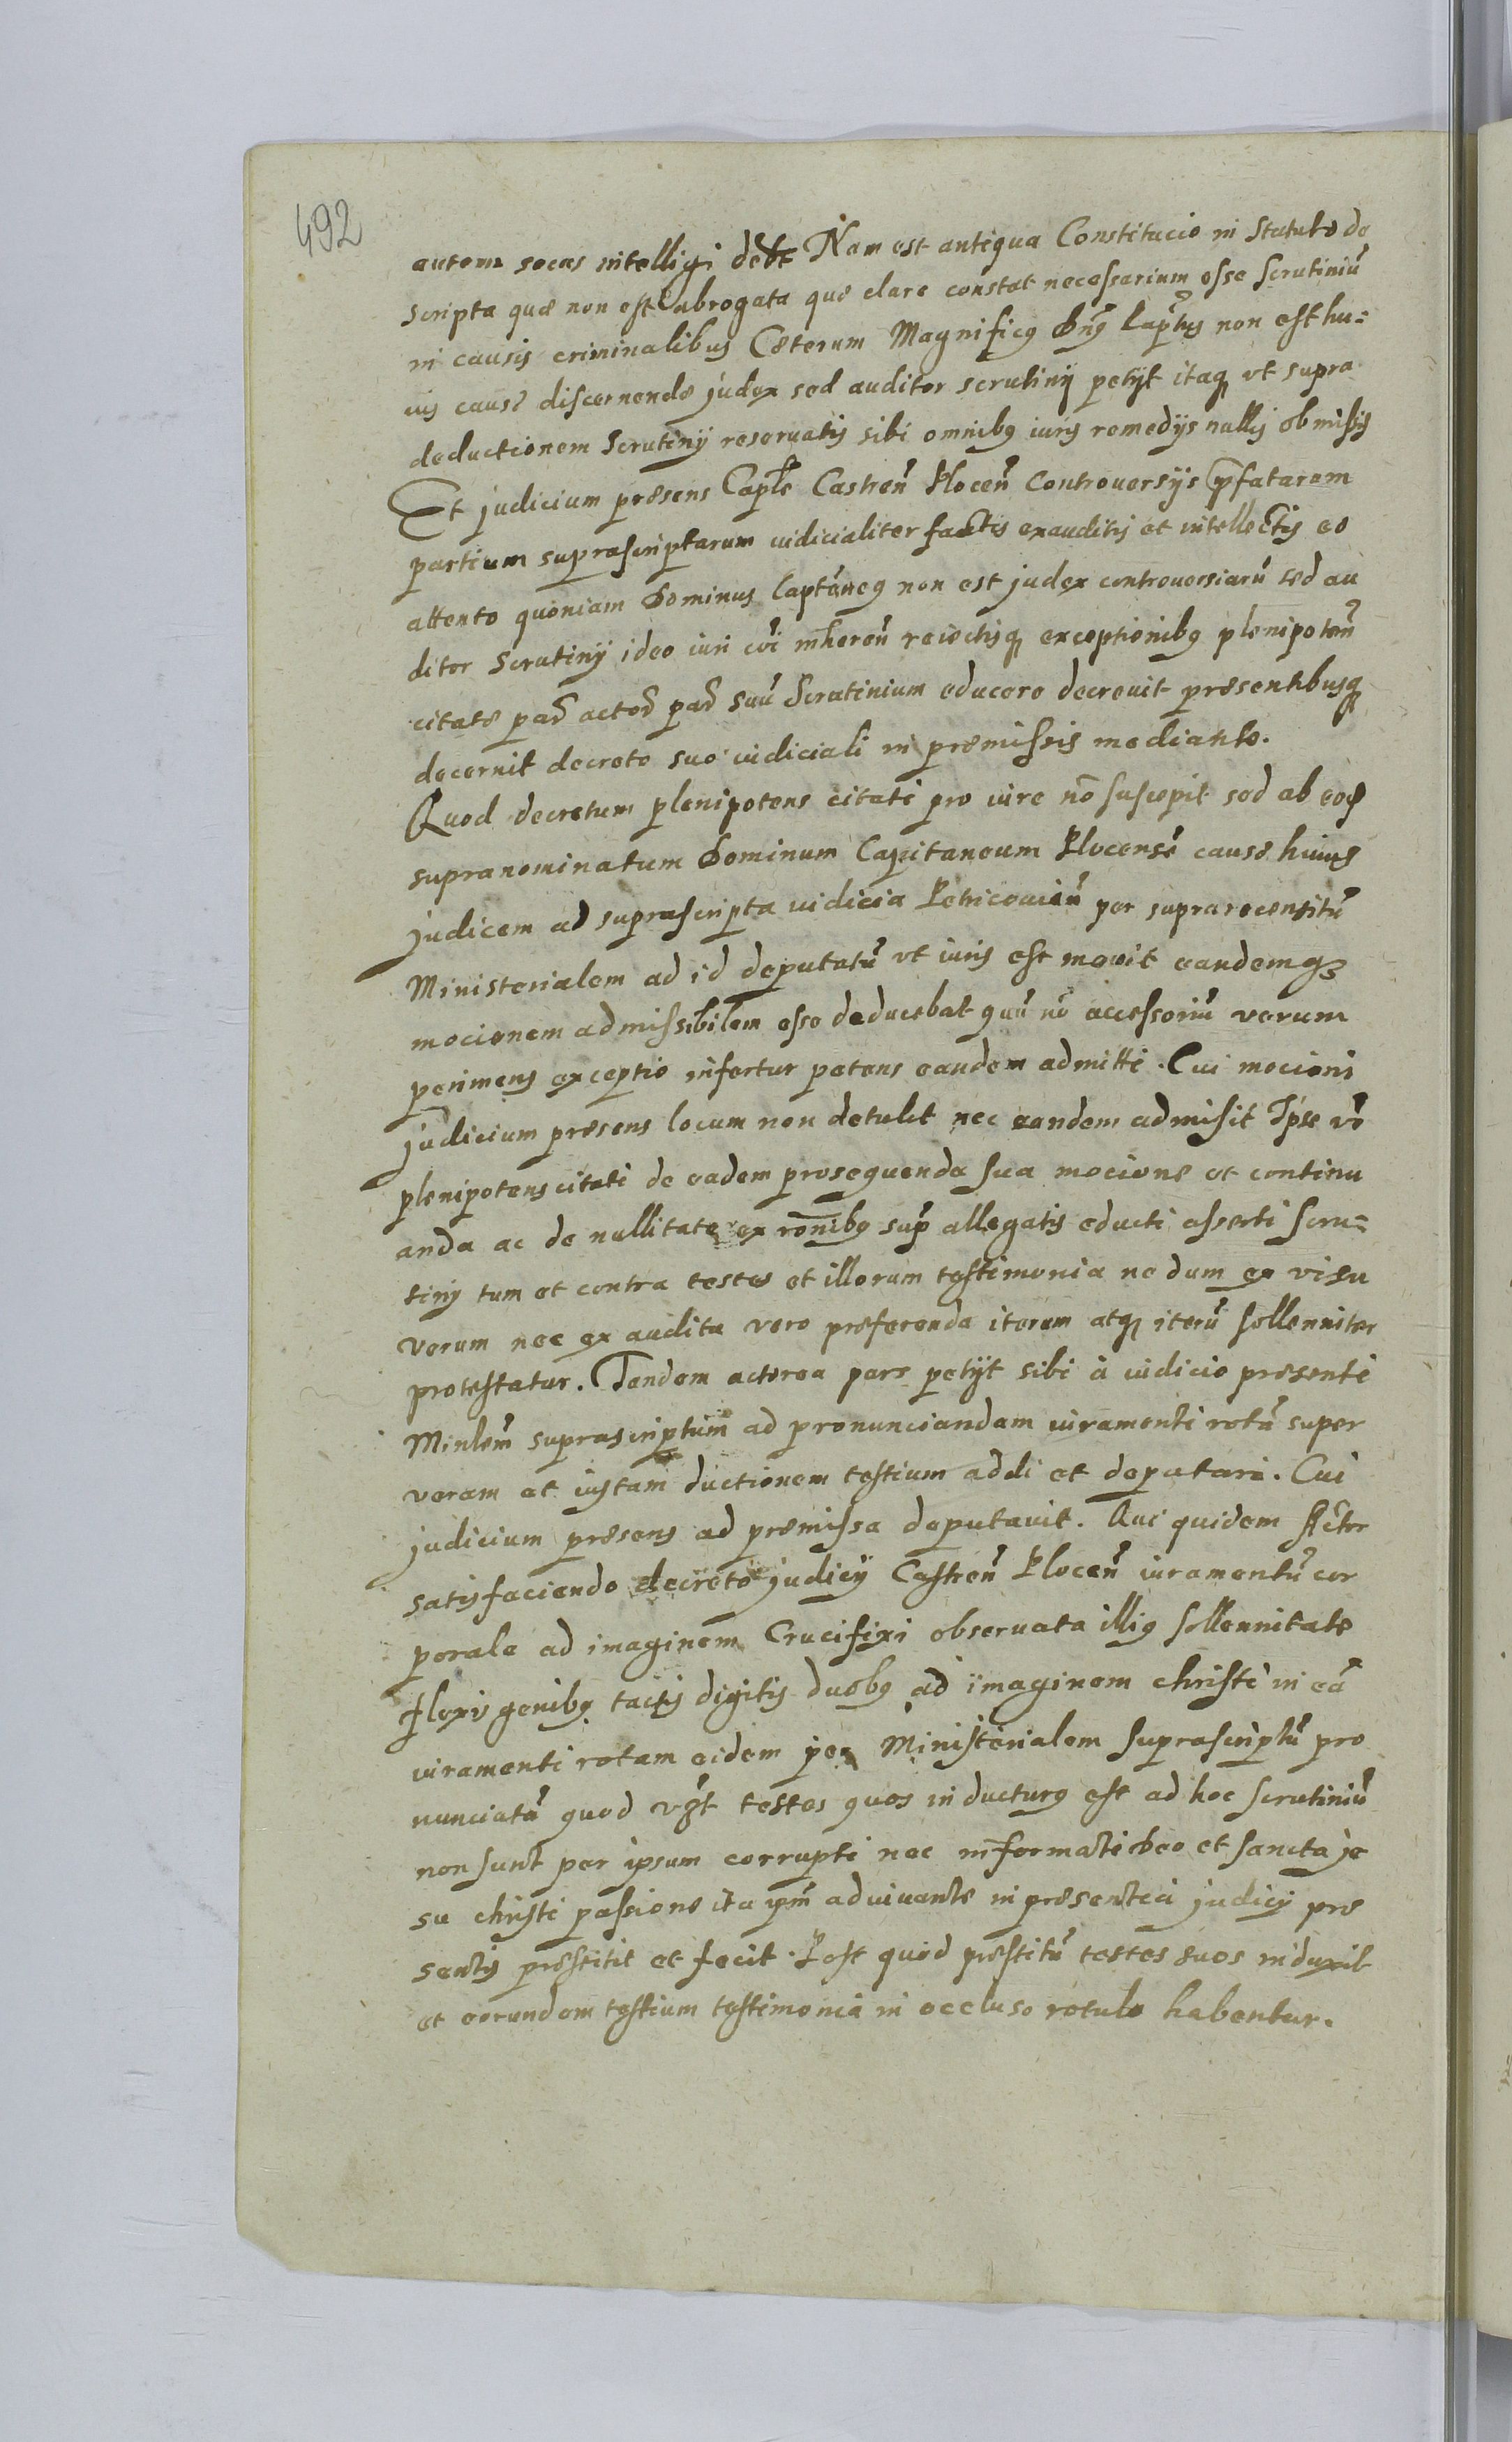 492
autem secus intelligi debet Nam est antiqua Constitucio in Statuto de
scripta quæ non est abrogata quæ clare constat necessarium esse Scrutiniũ
in causis criminalibus Cæterum Magnificq Dnq Captus non est hu=
ius causæ discernendæ judex sed auditor scrutinÿ petÿt itaq vt supra
deductionem Scrutinÿ reseruatis sibi omnibq iuris remedÿs nullis obmissis
Et judicium præsens Caple Castreñ Plocen̄ Controuersÿs p̄fatarum
partium suprascriptarum iudicialiter factis exauditis et intellectis eo
attento quoniam Dominus Captaneq non est judex controuersiarũ sed au
ditor Scrutinÿ ideo iuri cõi inhæreñ reiectisq exceptionibq plenipoteñ
citatæ par̃ actoř par̃ suũ Scrutinium educere decreuit præsentibusq
decernit decreto suo iudiciali in præmissis mediante.
Quod decretum plenipotens citati pro iure nõ suscepit sed ab eoq
supranominatum Dominum Capitaneum Plocensẽ causæ huius
judicem ad suprascripta iudicia Petricouieñ per suprarecensitũ
Ministerialem ad id deputatũ vt iuris est mouit eandemq
mocionem admissibilem esse deducebat quũ nõ accessoriũ verum
perimens exceptio infertur petens eandem admitti. Cui mocioni
judicium præsens locum non detulit nec eandem admisit Ipse vo
plenipotens citati de eadem prosequenda sua mocione et continu
anda ac de nullitate ex rõnibq sup allegatis educti asserti scru=
tinÿ tum et contra testes et illorum testimonia ne dum ex visu
verum nec ex auditu vero præferenda iterum atq iterũ sollenniter
protestatur. Tandem actorea pars petÿt sibi à iudicio præsenti
Minlem̄ suprascriptum ad pronunciandam iuramenti rotã super
veram et iustam ductionem testium addi et deputari. Cui
judicium præsens ad præmissa deputauit. Qui quidem Actor
satisfaciendo decreto judicÿ Castreñ Ploceñ iuramentũ cor
porale ad imaginem Crucifixi obseruata illiq sollennitate
flexis genibq tactis digitis duobq ad imaginem christi in eã
iuramenti rotam eidem per Ministerialem suprascriptũ pro
nunciatã quod testes quos inducturq est ad hoc scrutiniũ
non sunt per ipsum corrupti nec informati deo et sancta je
su christi passione ita ipm̄ adiuuante in præsentia judicÿ præ
sentis præstitit et fecit. Post quod præstitũ testes suos induxit
et eorundem testium testimonia in occluso rotulo habentur.